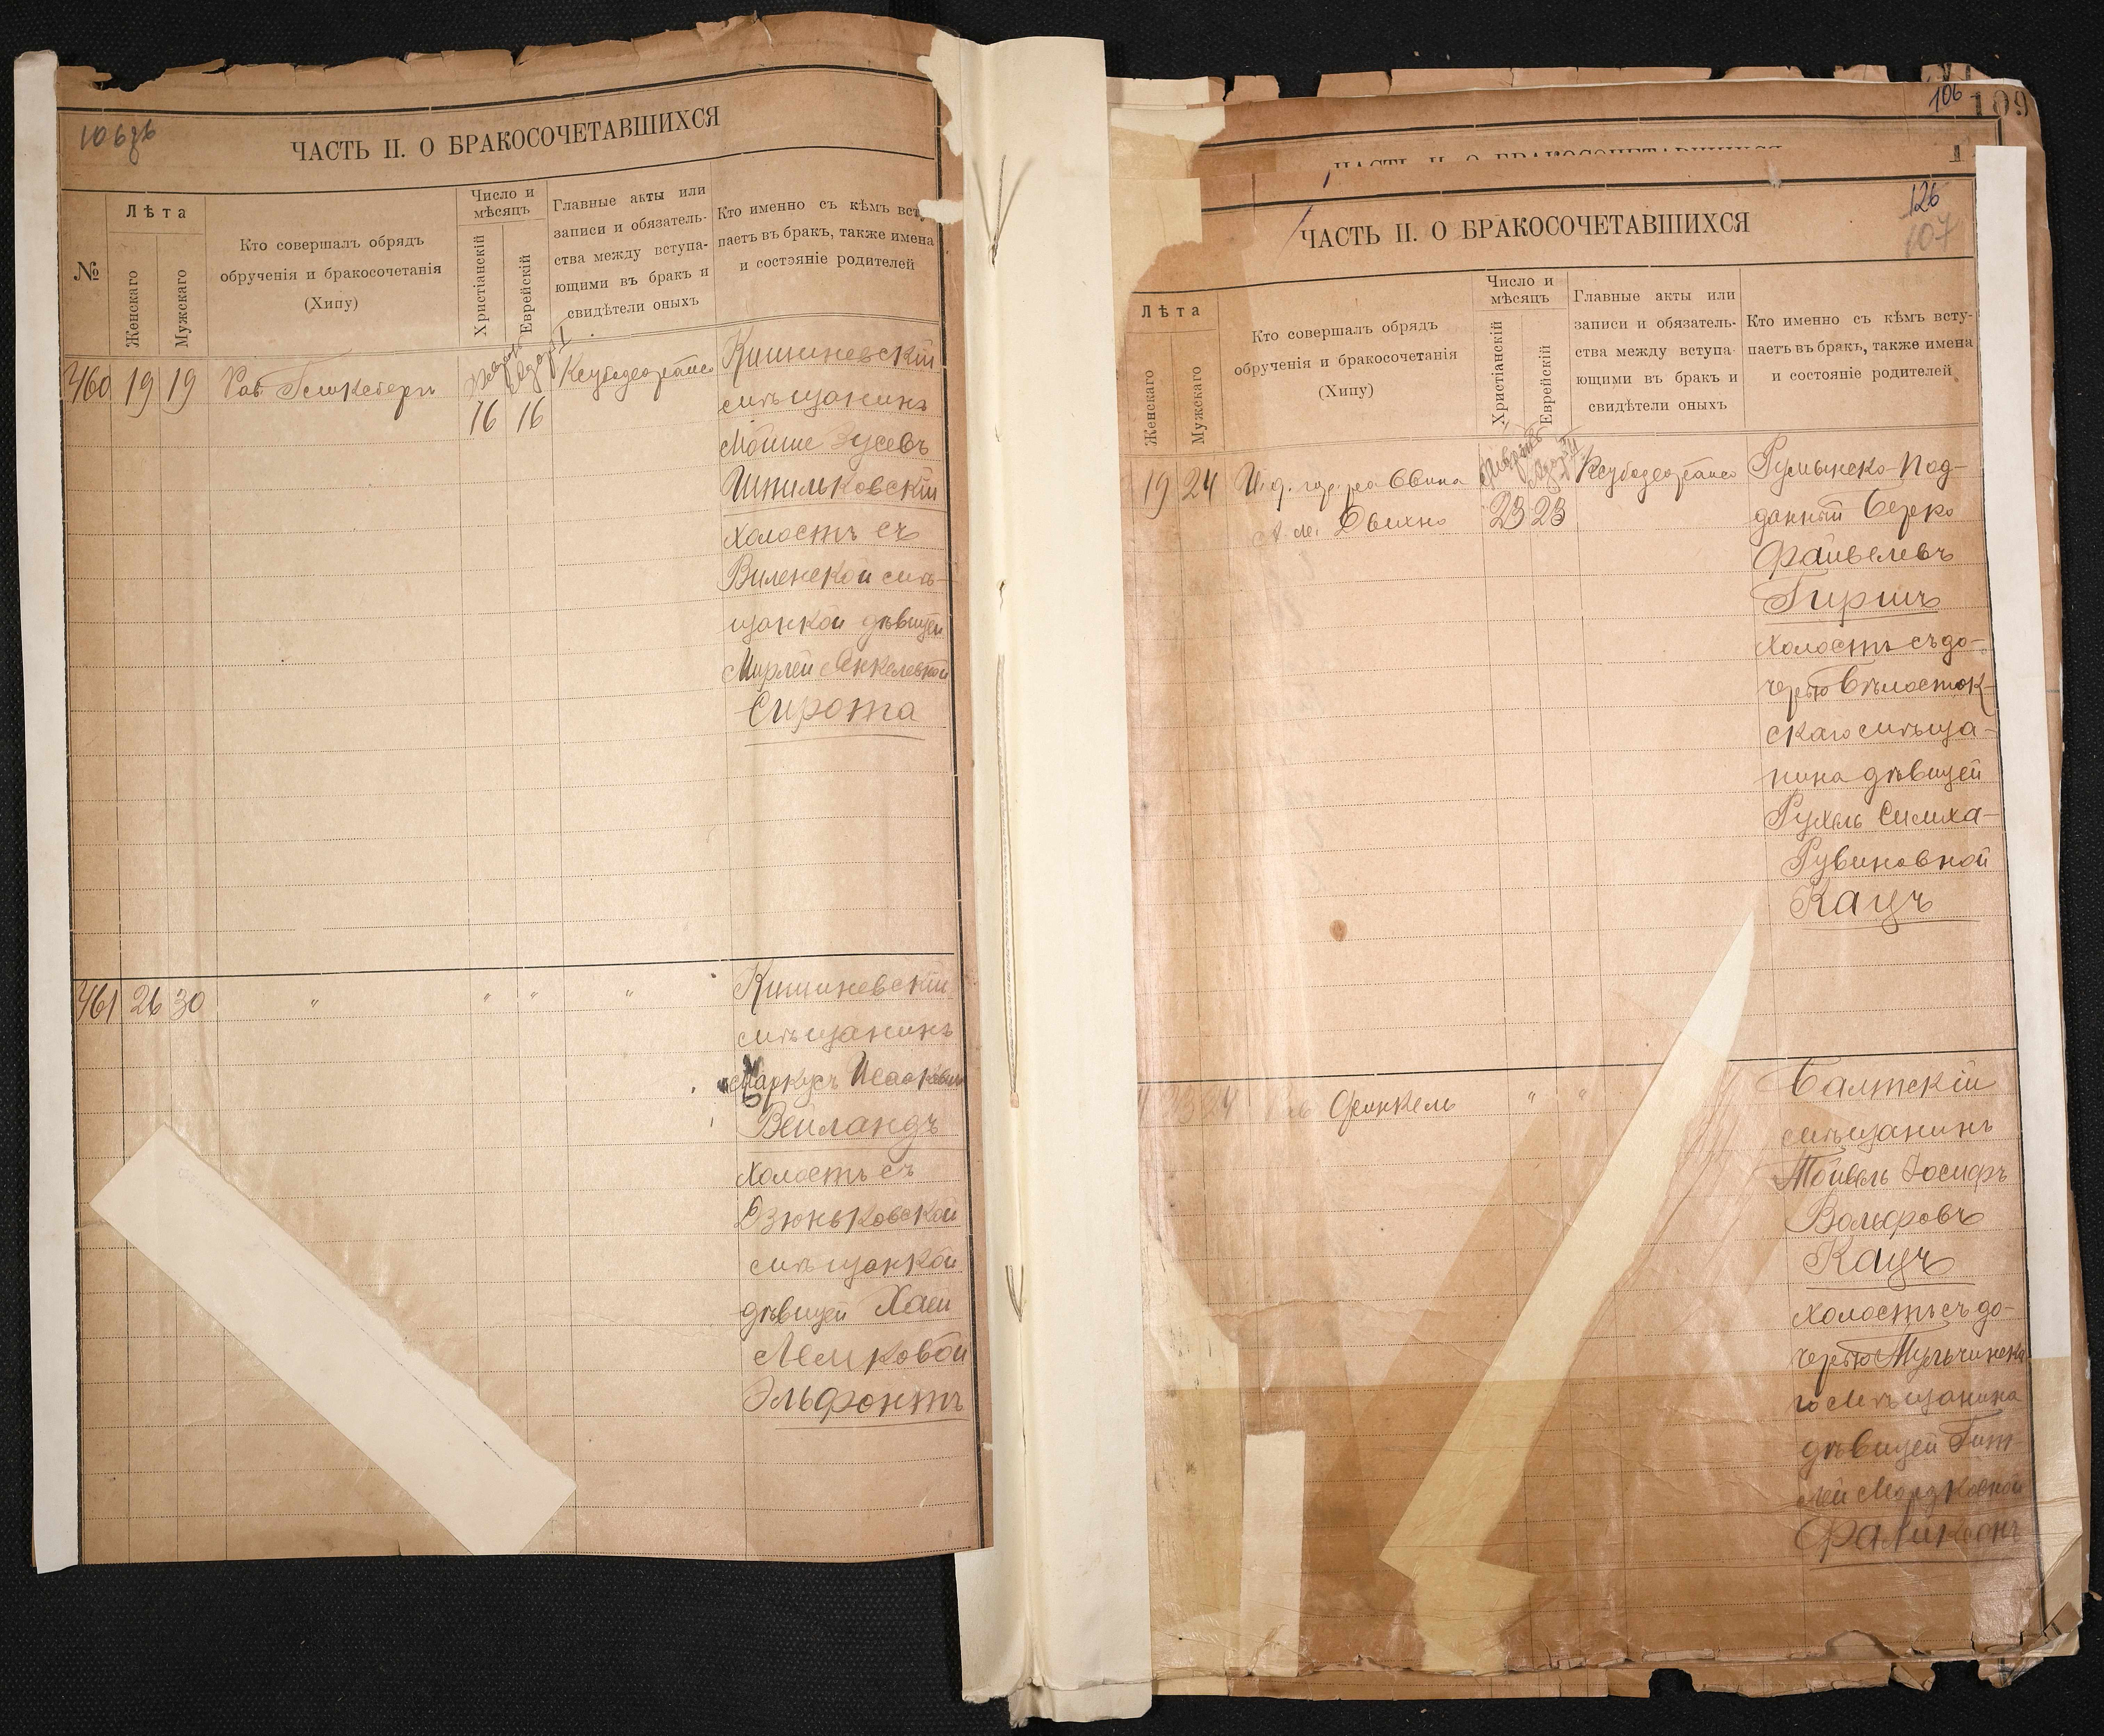 106об
ЧАСТЬ II. О БРАКОСОЧЕТАВШИХСЯ
№
Лѣта
Женскаго
Мужскаго
Кто совершалъ обрядъ
обрученія и бракосочетанія
(Хипу)
Число и
мѣсяцъ
Христіанскій
Еврейскій
Главные акты или
записи и обязатель-
ства между вступа-
ющими въ бракъ и
свидѣтели оныхъ
Кто именно съ кѣмъ всту
паетъ въ бракъ, также имена
и состояніе родителей
460 19 19
16 16
Кишиневскій
мѣщанинъ
Мойше Зусевъ
Шпильковскій
холостъ съ
Виленской мѣ-
щанкой дѣвицей
Мирлей Янкелевной
Сирота
461 26 30 " " " "
Кишиневскій
мѣщанинъ
Маркусъ
Вейландъ
холостъ съ
Дзюньковской
мѣщанкой
дѣвицей Хаей
Лемковой
Эльфонтъ
106
109
ЧАСТЬ II. О БРАКОСОЧЕТАВШИХСЯ
126
107
ЧАСТЬ II. О БРАКОСОЧЕТАВШИХСЯ
Лѣта
Женскаго
Мужскаго
Кто совершалъ обрядъ
обрученія и бракосочетанія
(Хипу)
Число и
мѣсяцъ
Христіанскій
Еврейскій
Главные акты или
записи и обязатель-
ства между вступа-
ющими въ бракъ и
свидѣтели оныхъ
Кто именно съ кѣмъ всту-
паетъ въ бракъ, также имена
и состояніе родителей
19 24 И. д. гор. раввина
А. М. Дыхно
23 23
Румынско-Под-
данный Берко
Файвелевъ
Гиршъ
холостъ съ до-
черью Бѣлосток-
скаго мѣща-
нина дѣвицей
Рухль Симха-
Рувиновной
Кацъ
24 Раб Френкель " "
Балтскій
мѣщанинъ
Тойвель Іосифъ
Вольфовъ
Кацъ
холостъ съ до-
черью Тульчинска
го Мѣщанина
дѣвицей Гит-
лей Мордковной
Фаликсонъ